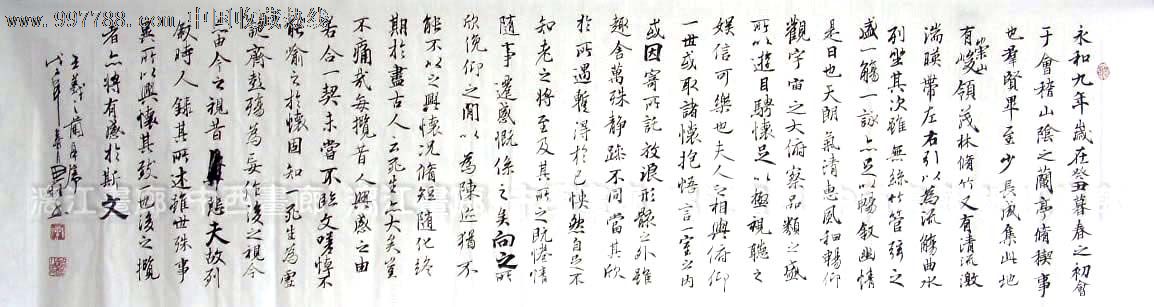 www.997788.com 中国收藏热线
永和九年歲在癸丑暮春之初會
于會稽山陰之蘭亭脩稧事
也羣賢畢至少長咸集此地
有崇山峻領茂林脩竹又有清流激
湍暎帶左右引以為流觴曲水
列坐其次雖無絲竹管弦之
盛一觴一詠亦足以暢敘幽情
是日也天朗氣清惠風和暢仰
觀宇宙之大俯察品類之盛
所以遊目騁懷足以極視聽之
娛信可樂也夫人之相與俯仰
一世或取諸懷抱悟言一室之內
或因寄所託放浪形骸之外雖
趣舍萬殊靜躁不同當其欣
於所遇暫得於己怏然自足不
知老之將至及其所之既惓情
隨事遷感慨係之矣向之所
欣俛仰之閒以為陳迹猶不
能不以之興懷況脩短隨化終
期於盡古人云死生亦大矣豈
不痛哉每攬昔人興感之由
若合一契未嘗不臨文嗟悼不
能喻之於懷固知死生為虛
誕齊彭殤為妄作後之視今
亦由今之視昔悲夫故列
敘時人錄其所述雖世殊事
異所以興懷其致一也後之攬
者亦將有感於斯文
王羲之蘭亭序
漓江畫廊 中西畫廊